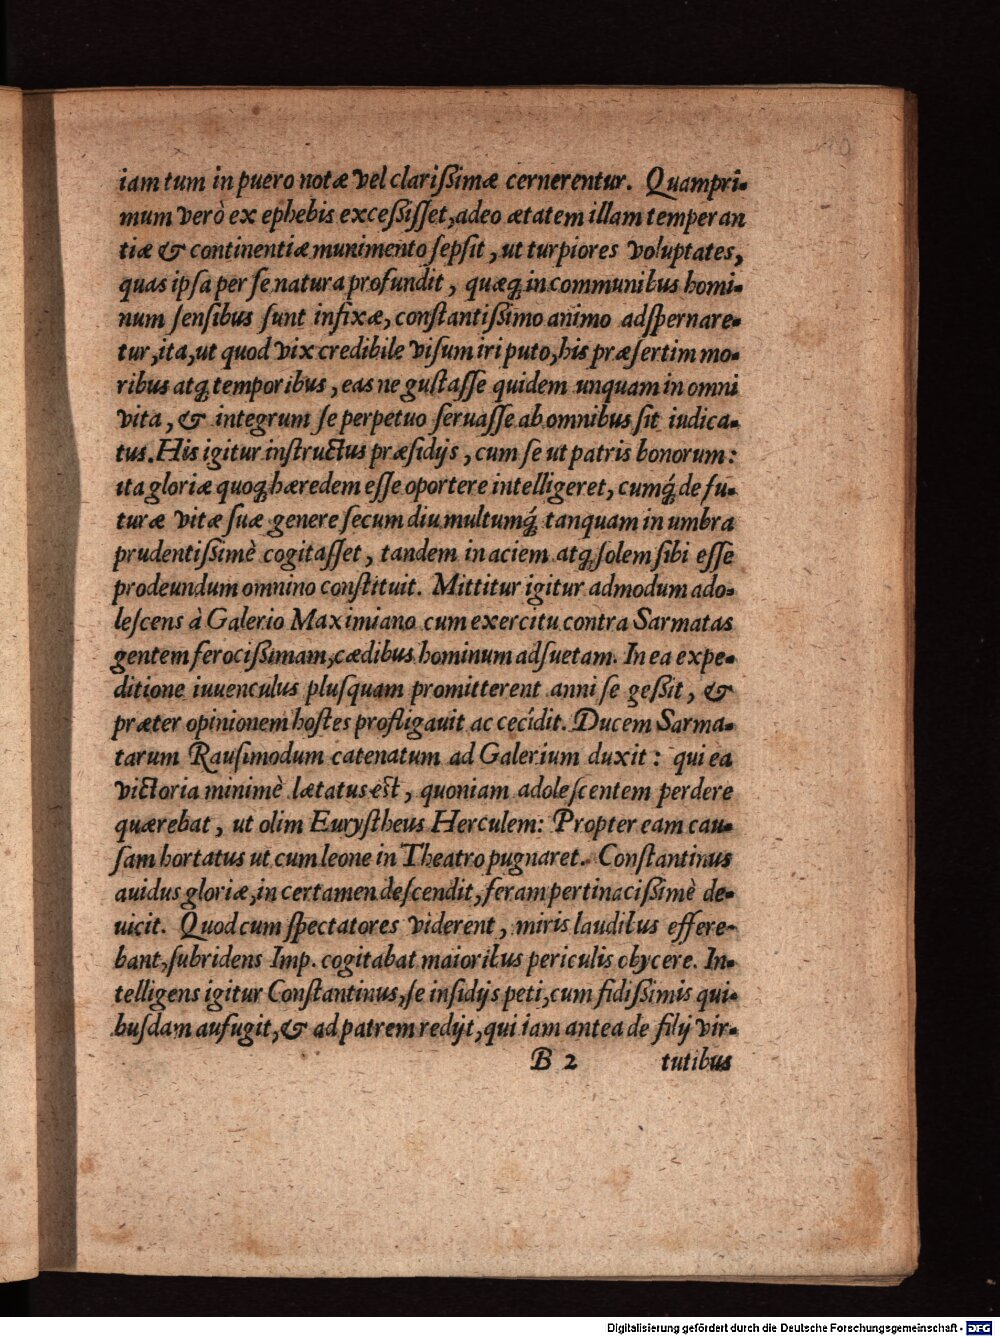 iam tum in puero notæ vel clarißimæ cernerentur. Quampri-
mum verò ex ephebis exceßiſſet, adeo ætatem illam temperan
tiæ & continentiæ munimento ſepſit, ut turpiores voluptates,
quas ipſa per ſe natura profundit, quæq́ in communibus homi-
num ſenſibus ſunt infixæ, conſtantißimo animo adſpernare-
tur, ita, ut quod vix credibile viſum iri puto, his præſertim mo-
ribus atq́ temporibus, eas ne guſtaſſe quidem unquam in omni
vita, & integrum ſe perpetuo ſeruaſſe ab omnibus ſit iudica-
tus. His igitur inſtructus præſidijs, cum ſe ut patris bonorum:
ita gloriæ quoq́ hæredem eſſe oportere intelligeret, cumq́ de fu-
turæ vitæ ſuæ genere ſecum diu multumq́ tanquam in umbra
prudentißimè cogitaſſet, tandem in aciem atq́ ſolem ſibi eſſe
prodeundum omnino conſtituit. Mittitur igitur admodum ado-
leſcens à Galerio Maximiano cum exercitu contra Sarmatas
gentem ferocißimam, cædibus hominum adſuetam. In ea expe-
ditione iuuenculus pluſquam promitterent anni ſe geßit, &
præter opinionem hoſtes profligauit ac cecîdit. Ducem Sarma-
tarum Rauſimodum catenatum ad Galerium duxit: qui ea
victoria minimè lætatus est, quoniam adoleſcentem perdere
quærebat, ut olim Euryſtheus Herculem: Propter eam cau-
ſam hortatus ut cum leone in Theatro pugnaret. Conſtantinus
auidus gloriæ, in certamen deſcendit, feram pertinacißimè de-
uicit. Quod cum ſpectatores viderent, miris laudibus effere-
bant, ſubridens Imp. cogitabat maioribus periculis obycere. In-
telligens igitur Conſtantinus, ſe inſidijs peti, cum fidißimis qui-
buſdam aufugit, & ad patrem redijt, qui iam antea de filij vir-
B 2 tutibus
Digitalisierung gefördert durch die Deutsche Forschungsgemeinschaft - DFG